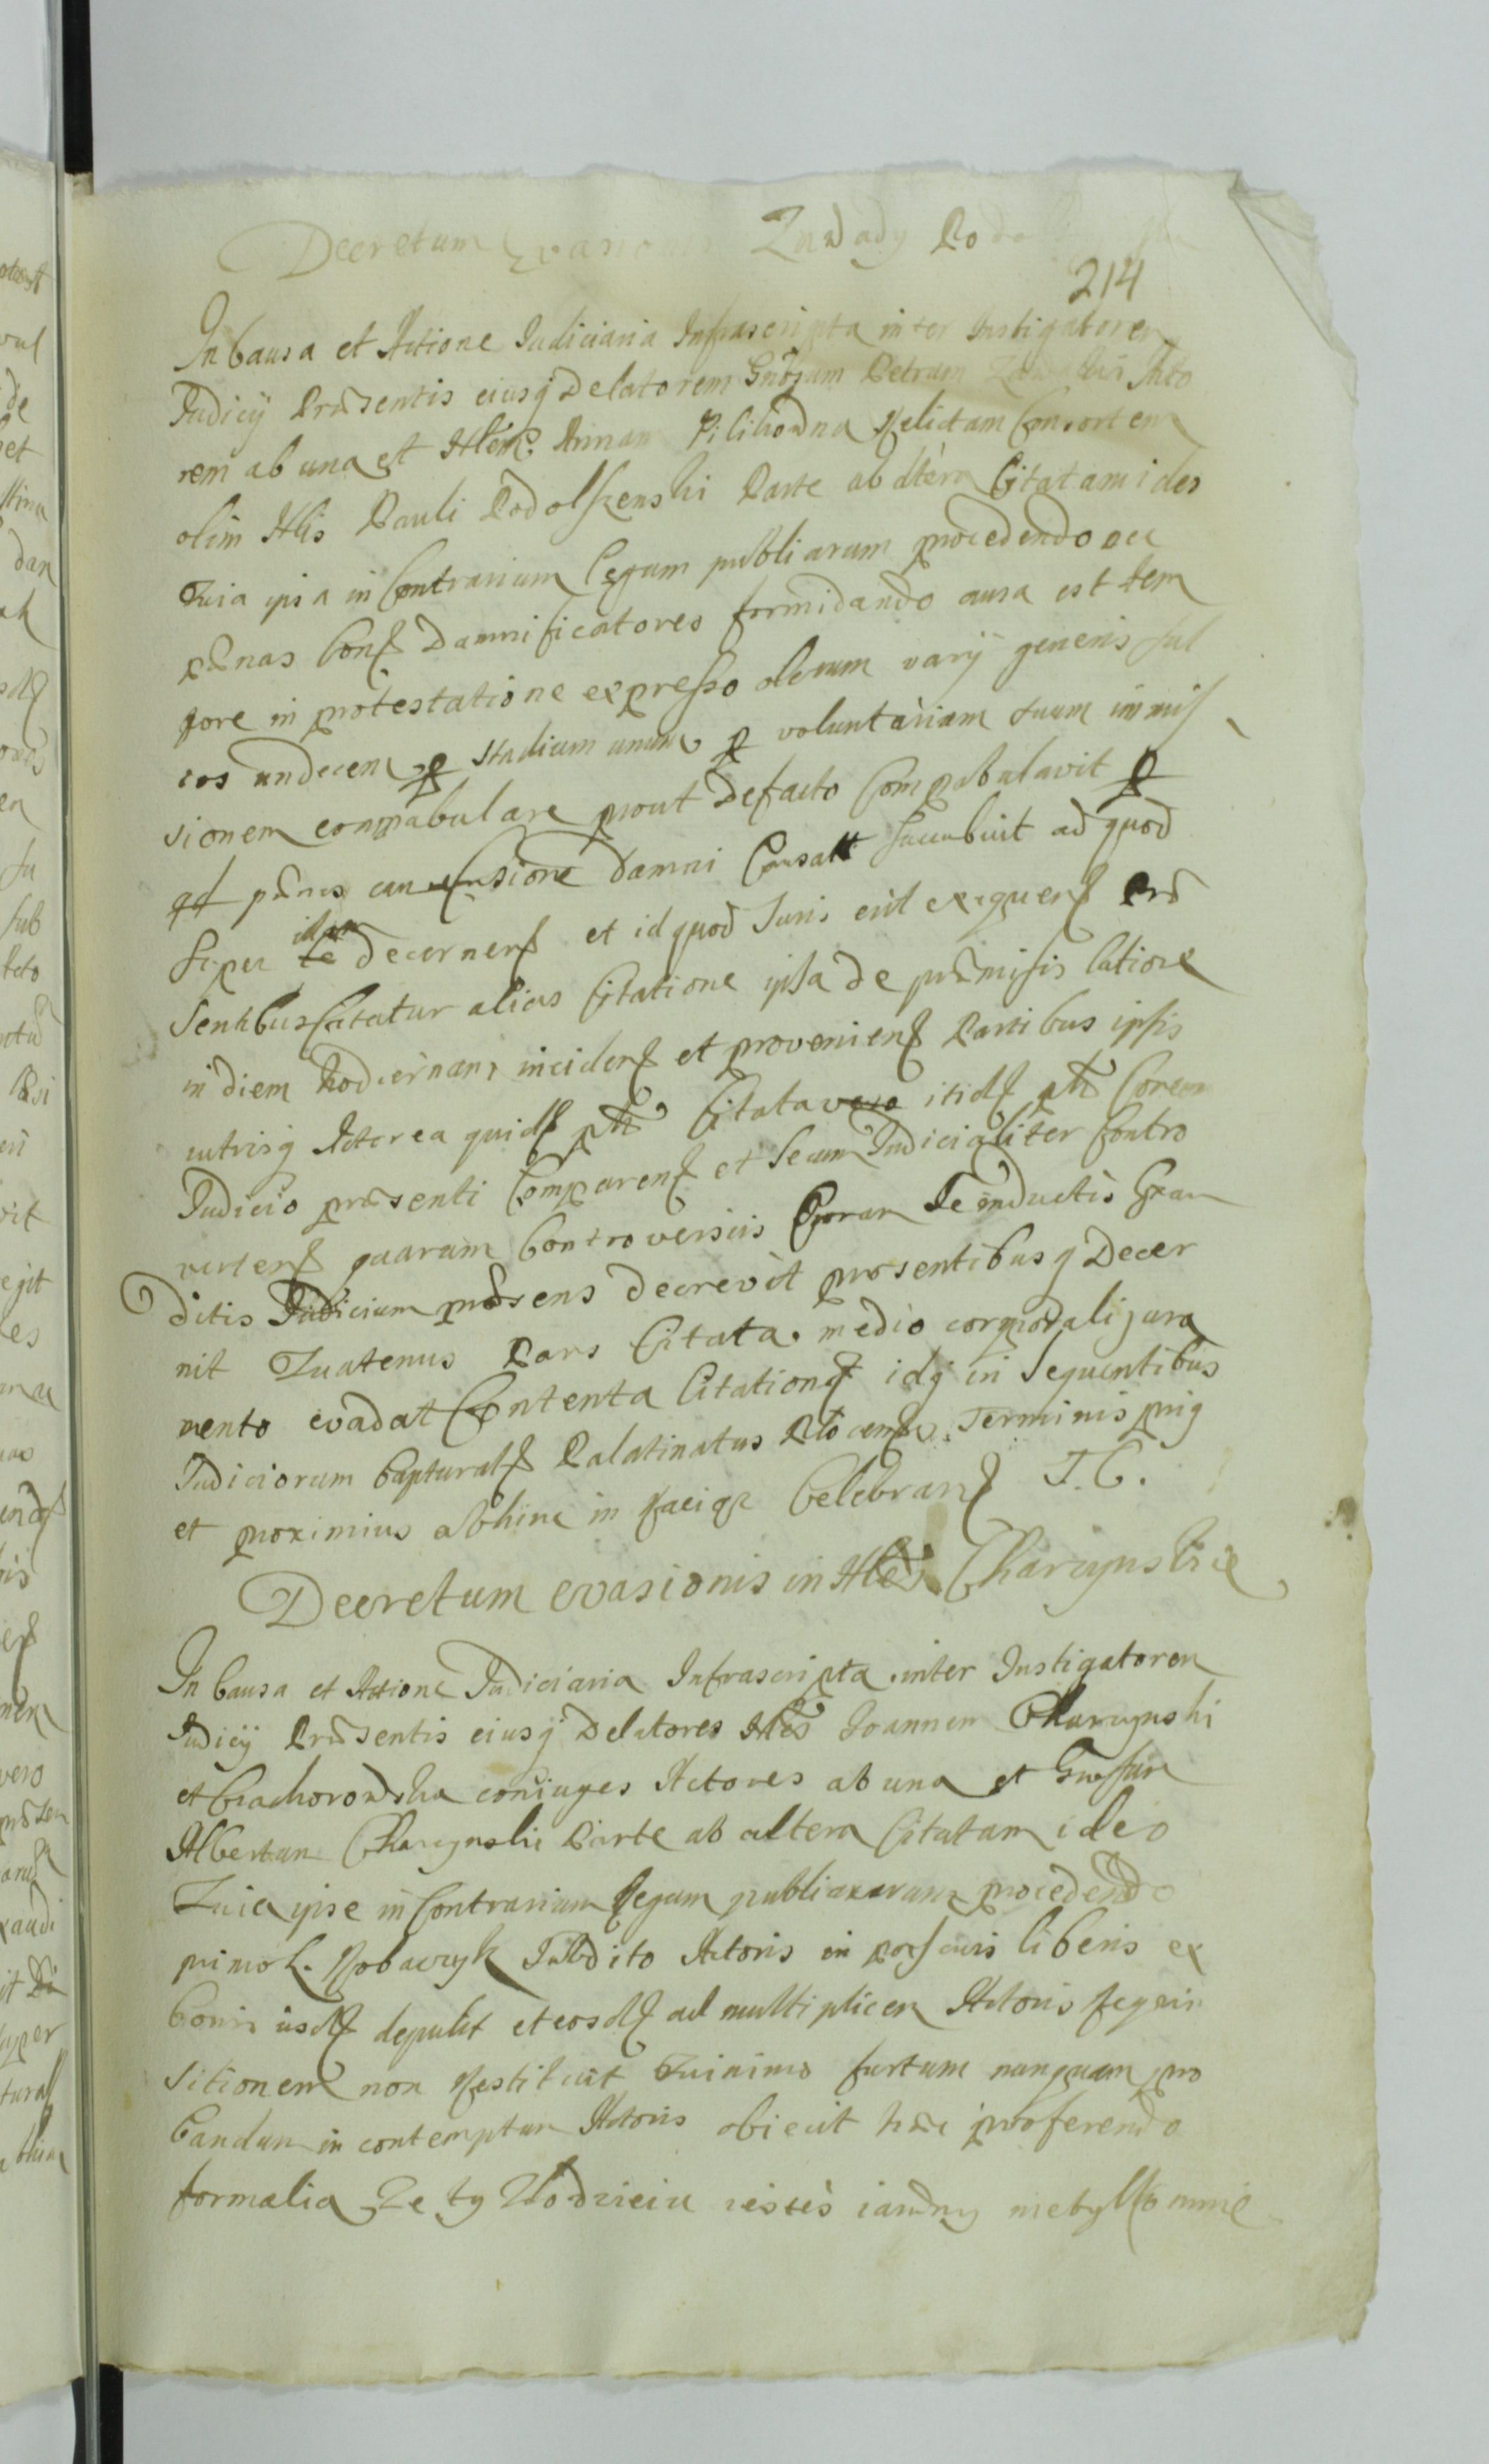 Decretum Evasionis Zawady Podo
214
In Causa et Actione Judiciaria Infrascripta inter Instigatorem
Judicÿ Pntis sentis eiusq Delatorem Gnosum Petrum Acto
rem ab una et Nlem Annam Pilihowna Relictam Consortem
olim Nlis Pauli Podolszenski Parte ab altera Citatam ideo
Quia ipsa in Contrarium Legum publicarum procedendo nec
pænas Cont Damnificatores formidando ausa est tem
pore in protestatione expresso olerum varÿ generis sul
cos undecem p stadium unum p voluntariam suam immis
sionem compabulare prout Defacto Compabulavit p
qd pænas damni Causati succubuit ad quod
super illam decernend et id quod Juris erit exequend Præ
sentibus Citatur alias Citatione ipsa de præmissis latione
in diem hodiernam incidens et proveniens Partibus ipsis
utrisq Actorea quid ptt Citata vero itid ptt Coram
Judicio præsenti Comparens et secum Judicialiter Contro
vertens quarum Controversiis Coram se inductis Exau
ditis Judicium præsens decrevit præsentibusq Decer
nit Quatenus Pars Citata medio corporali jura
mento evadat Contenta Citationis idq in Sequentibus
Judiciorum Capturals Palatinatus Plocensis Terminis prig
et proximius abhinc in Raciąż Celebrand J. C.
Decretum evasionis in Nles Charzynskie
In Causa et Actione Judiciaria Infrascripta inter Instigatorem
Judicÿ Præsentis eiusq Delatores Nles Joannem Charzynski
et Czachorowska coniuges Actores ab una et Gnosum
Albertum Charzynski Parte ab altera Citatam ideo
Quia ipse in Contrarium Legum publicarum procedendo
primo L. Robaczyk Subdito Actoris in liberis ex
bonis iisd depulit et eosd ad multiplicem Actoris requi
sitionem non Restituit Quinimo furtum nunquam pro
bandum in contemptum Actoris obiecit hæc proferendo
formalia Ze ty Złodzieiu iesteś iawny niebył to mnie